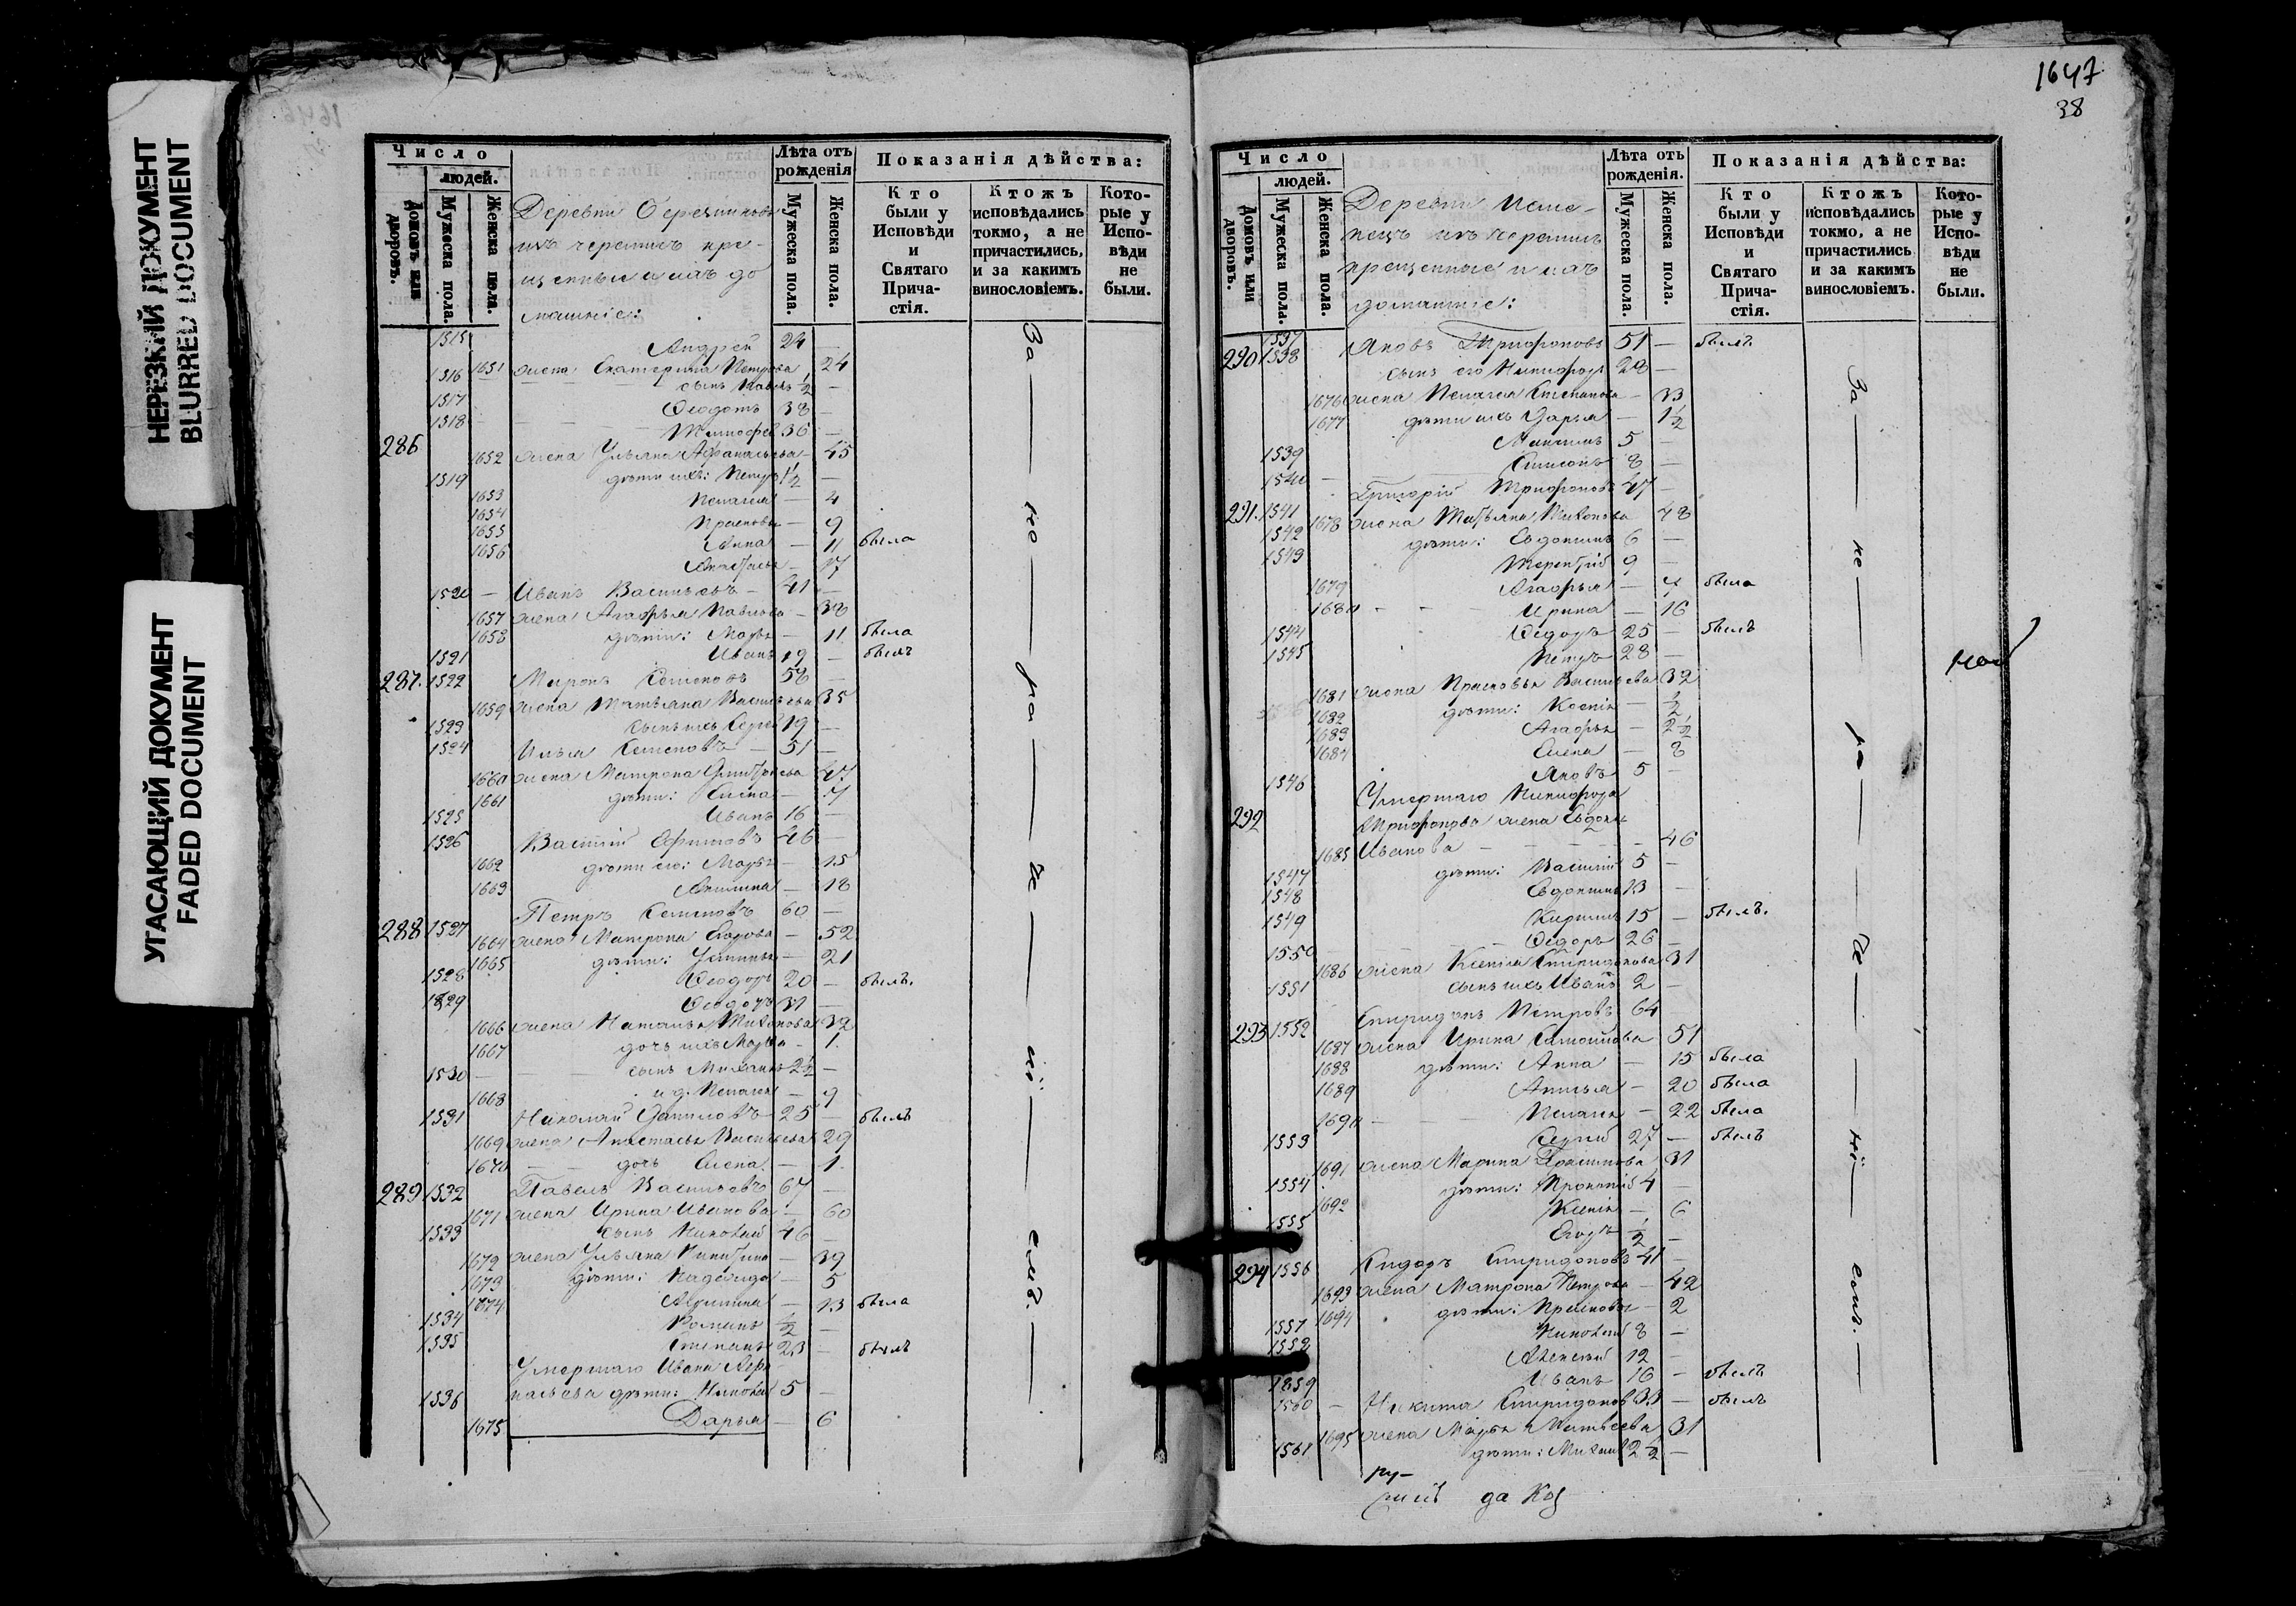 НЕРЕЗКИЙ ДОКУМЕНТ
BLURRED DOCUMENT
УГАСАЮЩИЙ ДОКУМЕНТ
FADED DOCUMENT
Число
людей.
Домовъ или дворовъ.
Мужеска пола.
Женска пола.
Деревни
изъ черемисъ кре-
щенныя и ихъ до
машніе:
Лѣта отъ рожденія
Мужеска пола.
Женска пола.
Показанія дѣйства:
Кто были у Исповѣди и Святаго Прича-стія.
Ктожъ исповѣдались токмо, а не причастились, и за какимъ винословіемъ.
Кото-рые у Испо-вѣди не были.
1515 Андрей 24 —
1516 1651 жена Екатерина Петрова 24
сынъ Павелъ ½ —
1517 Ѳеодотъ 38 —
1518 Тимофей 36 —
286 1652 жена Ульяна Афанасьева — 45
1519 дѣти ихъ: Петръ 1½ —
1653 Пелагея — 4
1654 Прасковья — 9
1655 Анна — 11 была
1656 Анастасья — 17
1520 — Иванъ Васильевъ — 41 —
1657 жена Агафья Павлова — 38
1658 дѣти: Марья — 11 была
1521 Иванъ 19 — былъ
287. 1522 Миронъ Семеновъ 58 —
1659 жена Татьяна Васильева 35
1523 сынъ ихъ Сергѣй 19 —
1524 Илья Семеновъ — 51 —
1660 жена Матрона Дмитріева 47
1661 дѣти: Елена — 7
1525 Иванъ 16 —
1526 Василій Ефимовъ 46 —
1662 дѣти его: Марья — 15
1663 Акилина — 18
288 1527 Петръ Семеновъ 60 —
1664 жена Матрона Егорова — 52
1665 дѣти: Устинья — 21
1528 Ѳеодоръ 20 — былъ.
1529 Ѳеодоръ 31 —
1666 жена Наталья Тихонова 32
1667 дочь ихъ Марья — 1.
1530 — сынъ Михаилъ 2½ —
1668 и д. Пелагея — 9
1531 Николай Даниловъ — 25 — былъ
1669 жена Анастасья Васильева 29
1670 — дочь Елена. — 1.
289 1532 Павелъ Васильевъ 67 —
1671 жена Ирина Иванова — 60
1533 сынъ Николай 46 —
1672 жена Ульяна Никитина — 39
1673 дѣти: Надежда — 5
1674 Акилина — 13 была
1534 Романъ ½ —
1535 Степанъ 23 — былъ
Умершаго Ивана Афа-
1536 насьева дѣти: Николай 5 —
1675 Дарья — 6
За — не — ра — че — ні — емъ. —
1647
38
Число
людей.
Домовъ или дворовъ.
Мужеска пола.
Женска пола.
Деревни
изъ черемисъ
крещенные и ихъ
домашніе:
Лѣта отъ рожденія.
Мужеска пола.
Женска пола.
Показанія дѣйства:
Кто были у Исповѣди и Святаго Прича-стія.
Ктожъ исповѣдались токмо, а не причастились, и за какимъ винословіемъ.
Кото-рые у Испо-вѣди не были.
1537 Яковъ Трифоновъ 51 — былъ
290 1538 сынъ его Никифоръ 28 —
1676 жена Пелагея Степанова — 33
1677 дѣти ихъ Дарья — 1½
Максимъ 5 —
1539 Симеонъ 8 —
1540 — Григорій Трифоновъ 47 —
291. 1541 1678 жена Татьяна Тихонова 48
1542 дѣти: Евдокимъ 6 —
1543 Терентій 9 —
1679 Агафья — 7 была
1680 — Ирина — 16
1544 Ѳедоръ 25 — былъ
1545 Петръ 28 —
1681 жена Прасковья Васильева 32
1682 дѣти: Ксенія — ½
1683 Агафья — 2½
1684 Елена — 8
1546 Яковъ 5 —
Умершаго Никифора
292 Трифонова жена Евдокія
1685 Иванова — 46
1547 дѣти: Василій 5 —
1548 Евдокимъ 13 —
1549 Кирилъ 15 — былъ.
1550 Ѳедоръ 26 —
1686 жена Ксенія Спиридонова 31
1551 сынъ ихъ Иванъ 2 —
293 1552 Спиридонъ Петровъ 64
1687 жена Ирина Самойлова 51
1688 дѣти: Анна — 15 была
1689 Анисья — 20 была
1690 — Пелагея — 22 была
1553 Сергѣй 27 — былъ
1691 жена Марина 31
1554 дѣти: Прокопій 4 —
1692 Ксенія — 6
1555 Егоръ ½ —
294 1556 Сидоръ Спиридоновъ 41 —
1693 жена Матрона Петрова — 42
1694 дѣти: Прасковья — 2
1557 Николай 8 —
1558 Алексѣй 12 —
1559 Иванъ 16 — былъ
1560 — Никита Спиридоновъ 33 — былъ
1695 жена Марья Матвѣева 31
1561 дѣти: Михаилъ 2½ —
За — не — ра — че — ні — емъ. —